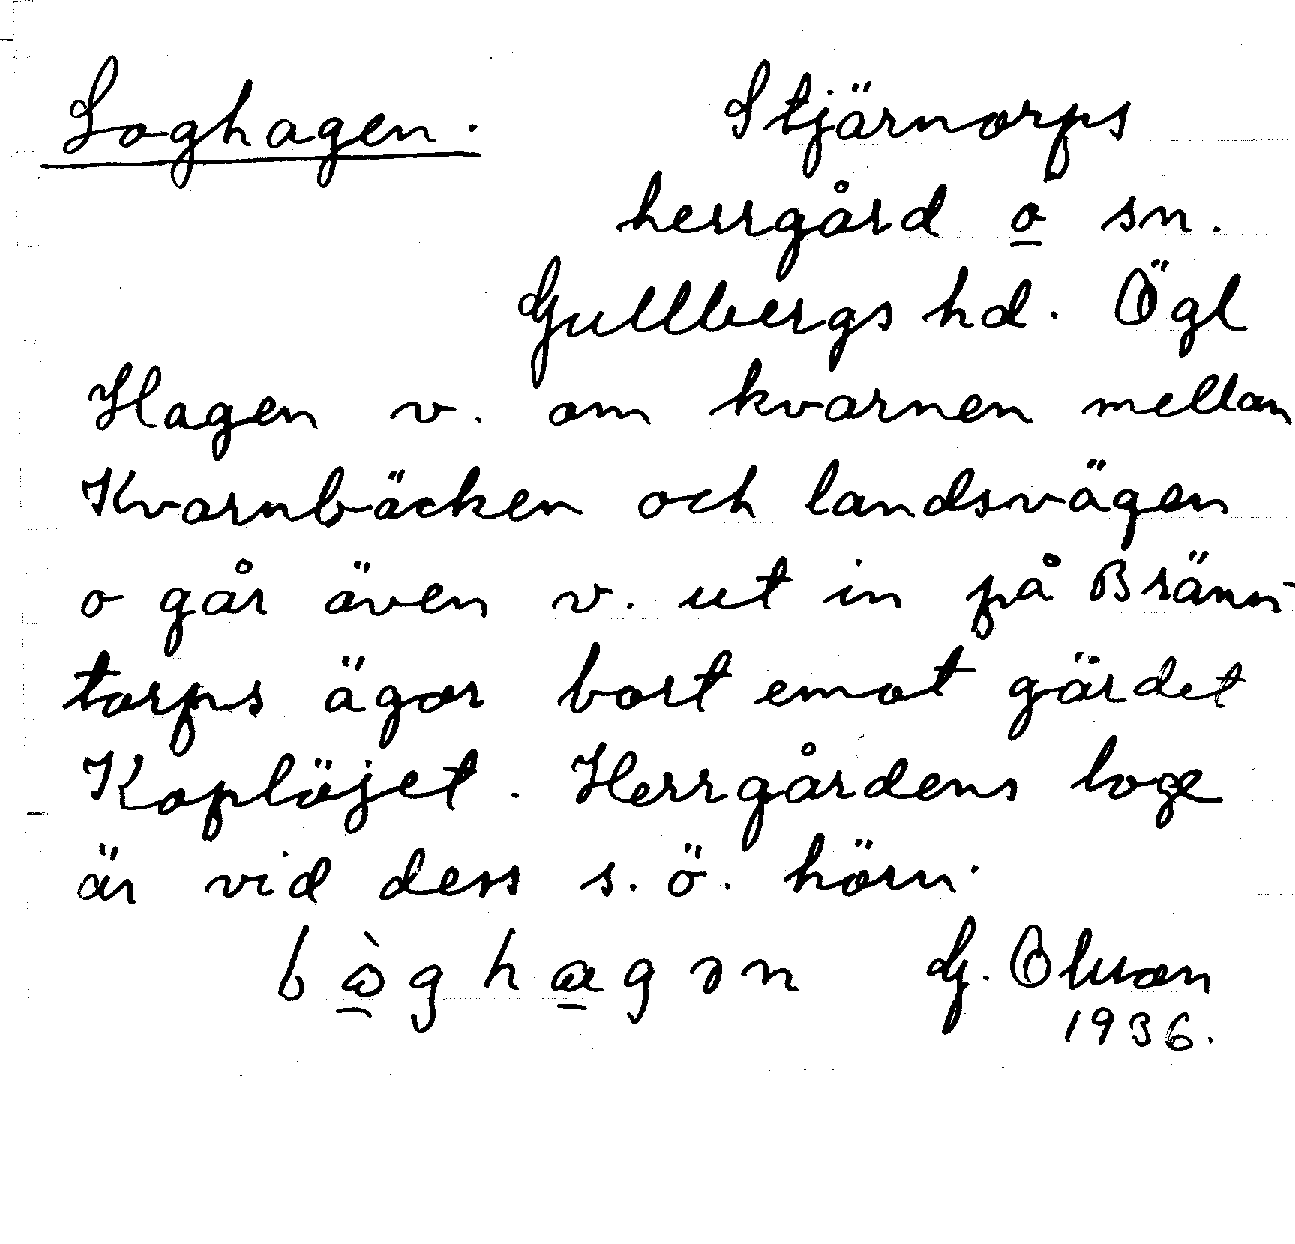 Loghagen. Stjärnorps
herrgård o sn.
Gullbergs hd. Ögl
Hagen v. om kvarnen mellan
Kvarnbäcken och landsvägen
o går även v. ut in på Bränn-
torps ägor bort emot gärdet
Koplöjet. Herrgårdens loge
är vid dess s. ö. hörn.
G. Olsson
1936.